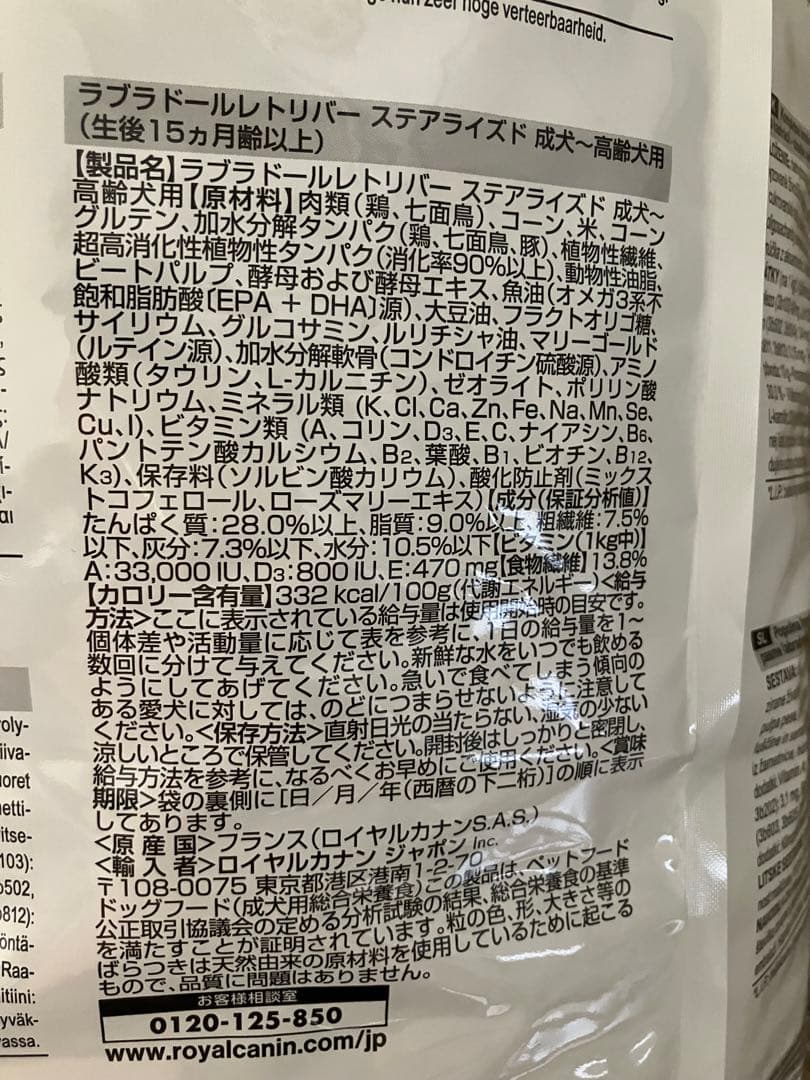 hoge verteerbaarheid.
ラブラドールレトリバー ステアライズド 成犬～高齢犬用
(生後15ヵ月齢以上)
【製品名】ラブラドールレトリバー ステアライズド 成犬～
高齢犬用【原材料】肉類(鶏、七面鳥)、コーン、米、コーン
グルテン、加水分解タンパク(鶏、七面鳥、豚)、植物性繊維、
超高消化性植物性タンパク(消化率90%以上)、動物性油脂、
ビートパルプ、酵母および酵母エキス、魚油(オメガ3系不
飽和脂肪酸〔EPA + DHA〕源)、大豆油、フラクトオリゴ糖、
サイリウム、グルコサミン、ルリチシャ油、マリーゴールド
(ルテイン源)、加水分解軟骨(コンドロイチン硫酸源)、アミノ
酸類(タウリン、L-カルニチン)、ゼオライト、ポリリン酸
ナトリウム、ミネラル類 (K、Cl、Ca、Zn、Fe、Na、Mn、Se、
Cu、I)、ビタミン類 (A、コリン、D3、E、C、ナイアシン、B6、
パントテン酸カルシウム、B2、葉酸、B1、ビオチン、B12、
K3)、保存料(ソルビン酸カリウム)、酸化防止剤(ミックス
トコフェロール、ローズマリーエキス)【成分(保証分析値)】
たんぱく質：28.0%以上、脂質：9.0%以上、粗繊維：7.5%
以下、灰分：7.3%以下、水分：10.5%以下【ビタミン(1kg中)】
A：33,000 IU、D3：800 IU、E：470 mg【食物繊維】13.8%
【カロリー含有量】332 kcal/100g(代謝エネルギー)<給与
方法>ここに表示されている給与量は使用開始時の目安です。
個体差や活動量に応じて表を参考に、1日の給与量を1～
数回に分けて与えてください。新鮮な水をいつでも飲める
ようにしてあげてください。急いで食べてしまう傾向の
ある愛犬に対しては、のどにつまらせないように注意して
ください。<保存方法>直射日光の当たらない、湿気の少ない
涼しいところで保管してください。開封後はしっかりと密閉し、
給与方法を参考に、なるべくお早めにご使用ください。<賞味
期限>袋の裏側に [日／月／年(西暦の下二桁)]の順に表示
してあります。
<原 産 国>フランス(ロイヤルカナンS.A.S.)
<輸 入 者>ロイヤルカナン ジャポン Inc.
〒108-0075 東京都港区港南1-2-70
ドッグフード(成犬用総合栄養食)この製品は、ペットフード
公正取引協議会の定める分析試験の結果、総合栄養食の基準
を満たすことが証明されています。粒の色、形、大きさ等の
ばらつきは天然由来の原材料を使用しているために起こる
もので、品質に問題はありません。
お客様相談室
0120-125-850
www.royalcanin.com/jp
SL